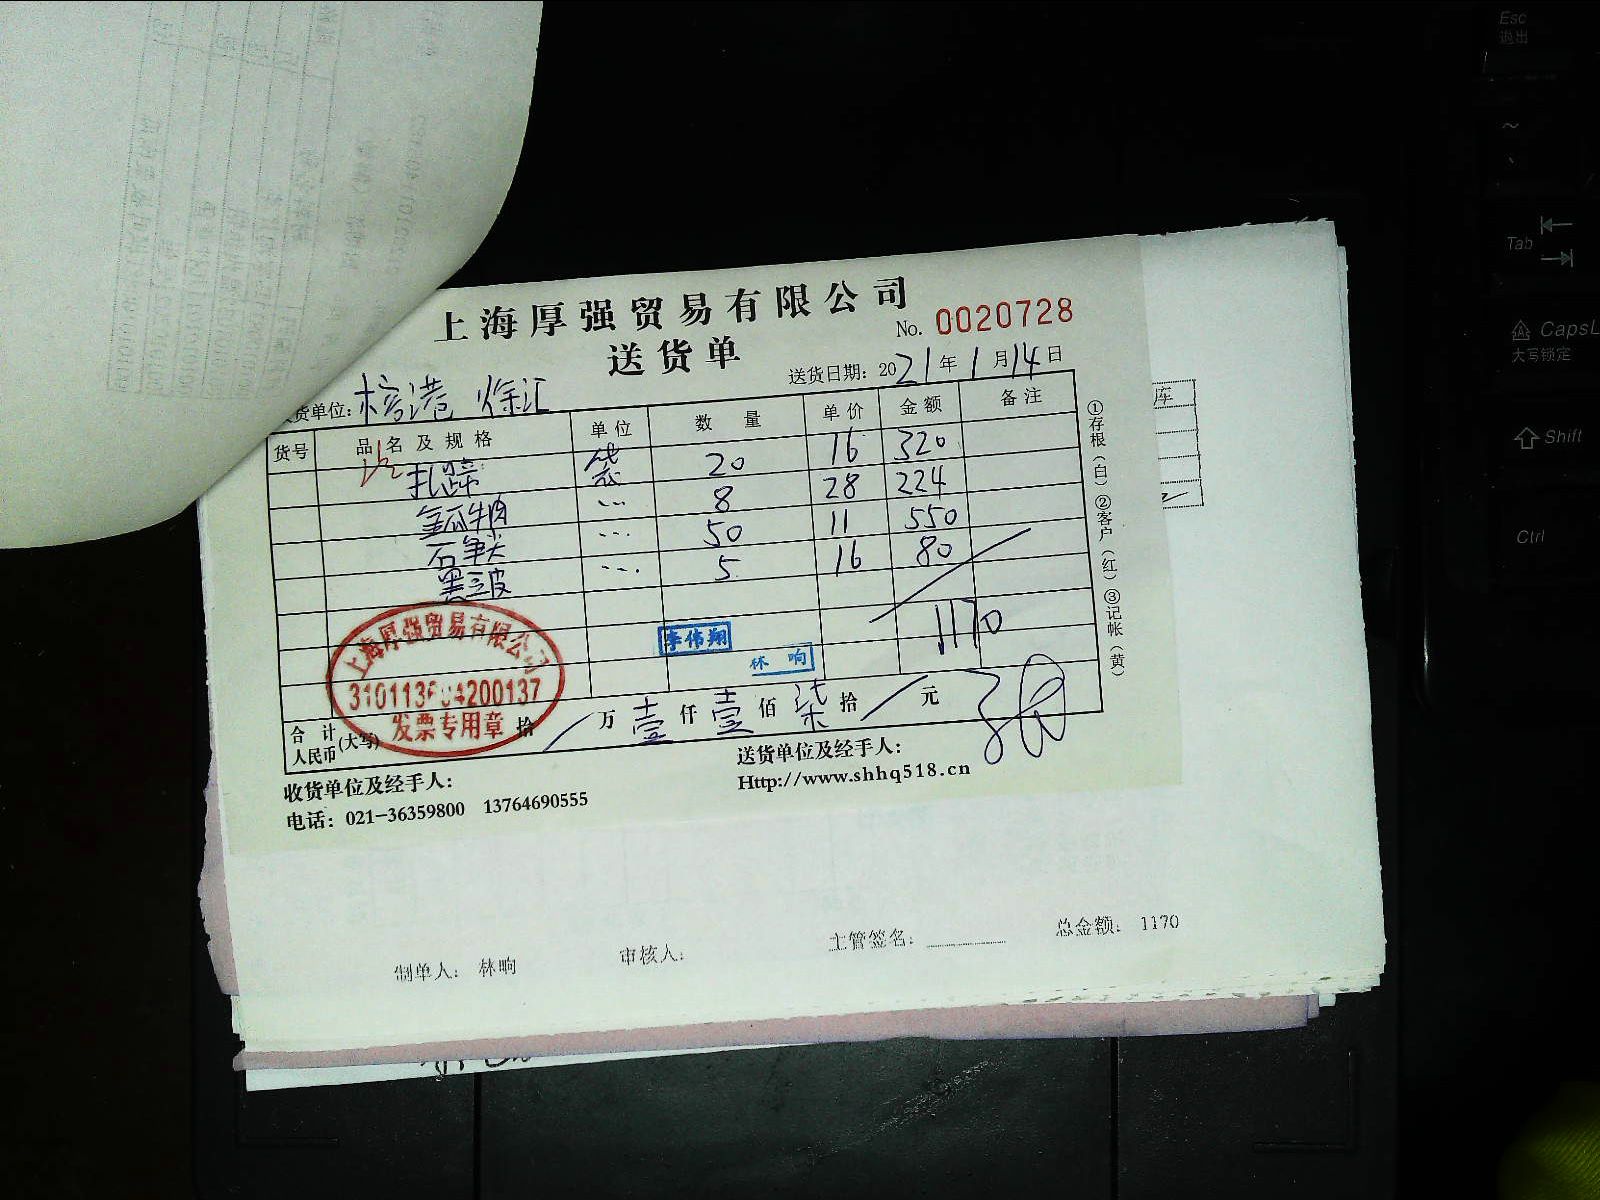 上海厚强贸易有限公司
No. 0020728
送货单
送货日期：2021年1月14日
货单位：榕港 徐汇
货号 品名及规格 单位 数量 单价 金额 备注
扎蹄 袋 20 16 320
金瓜牛肉 ... 8 28 224
石笋尖 ... 50 11 550
黑豆皮 ... 5 16 80
1170
李伟翔
林响
上海厚强贸易有限公司
发票专用章
合计人民币(大写) 拾 万 壹 仟 壹 佰 柒 拾 元
收货单位及经手人：
送货单位及经手人：
电话：021-36359800 13764690555
Http://www.shhq518.cn
①存根（白）②客户（红）③记帐（黄）
库
制单人：林响
审核人：
主管签名：
总金额：1170
Esc
退出
~
Tab
CapsL
大写锁定
Shift
Ctrl